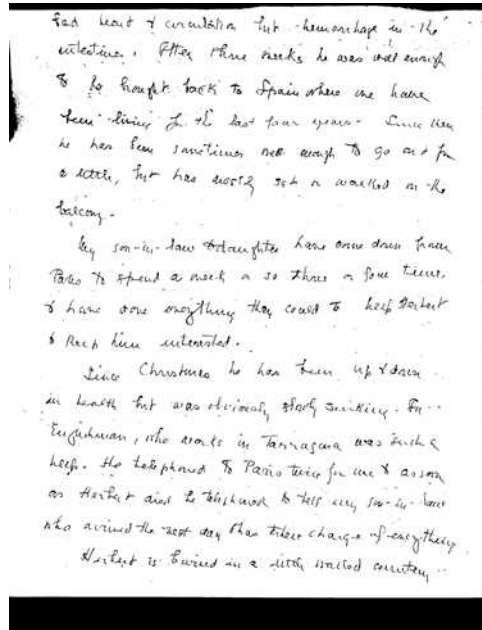 bad heart & circulation but hemorrhage in the
intestines. After three weeks he was well enough
to be brought back to Spain where we have
been living for the last four years. Since then
he has been sometimes well enough to go out for
a little, but has mostly sat or walked on the
balcony.
My son-in-law & daughter have come down from
Paris to spend a week or so three or four times
& have done everything they could to help Herbert
& keep him interested.
Since Christmas he has been up & down
in health but was obviously slowly sinking. An
Englishman, who works in Tarragona was such a
help. He telephoned to Paris twice for me & as soon
as Herbert died he telephoned to tell my son-in-law
who arrived the next day & has taken charge of everything.
Herbert is buried in a little walled cemetery